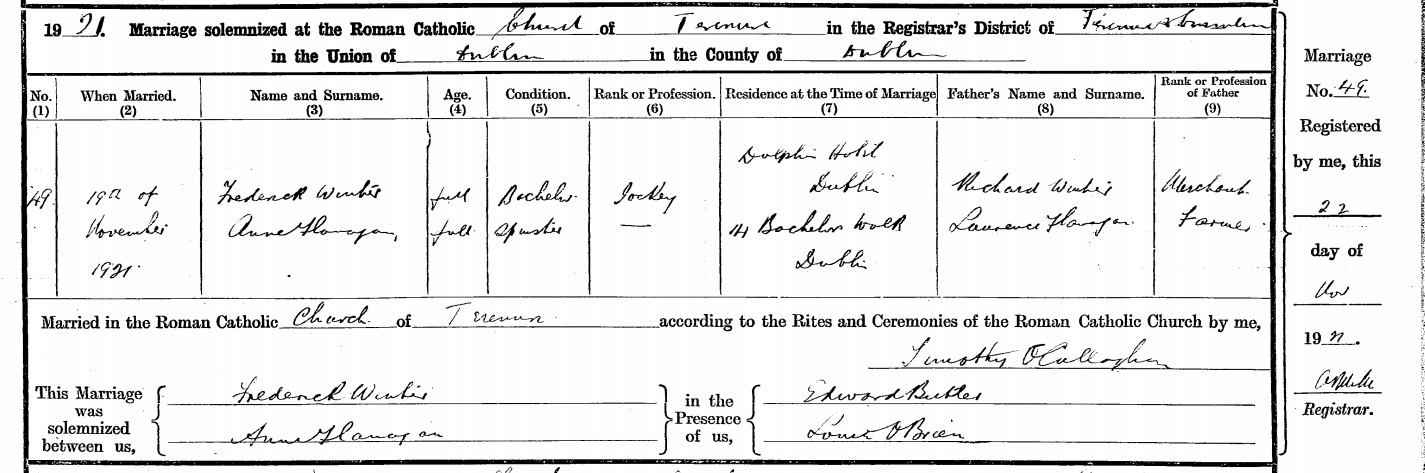 1921. Marriage solemnized at the Roman Catholic Church of Terenure in the Registrar's District of Terenure &
in the Union of Dublin in the County of Dublin
No. (1) When Married. (2) Name and Surname. (3) Age. (4) Condition. (5) Rank or Profession. (6) Residence at the Time of Marriage (7) Father's Name and Surname. (8) Rank or Profession of Father (9)
49 19th of November 1921. Frederick Winter full Bachelor Jockey Dolphin Hotel Dublin Richard Winter Merchant
Anne Flanagan, full Spinster — 14 Bachelors Walk Dublin Laurence Flanagan Farmer
Married in the Roman Catholic Church of Terenure according to the Rites and Ceremonies of the Roman Catholic Church by me,
Timothy O'Callaghan
This Marriage was solemnized between us,
Frederick Winter
Anne Flanagan
in the Presence of us,
Edward Butler
O'Brien
Marriage
No. 49.
Registered
by me, this
22
day of
Nov
1921.
Registrar.